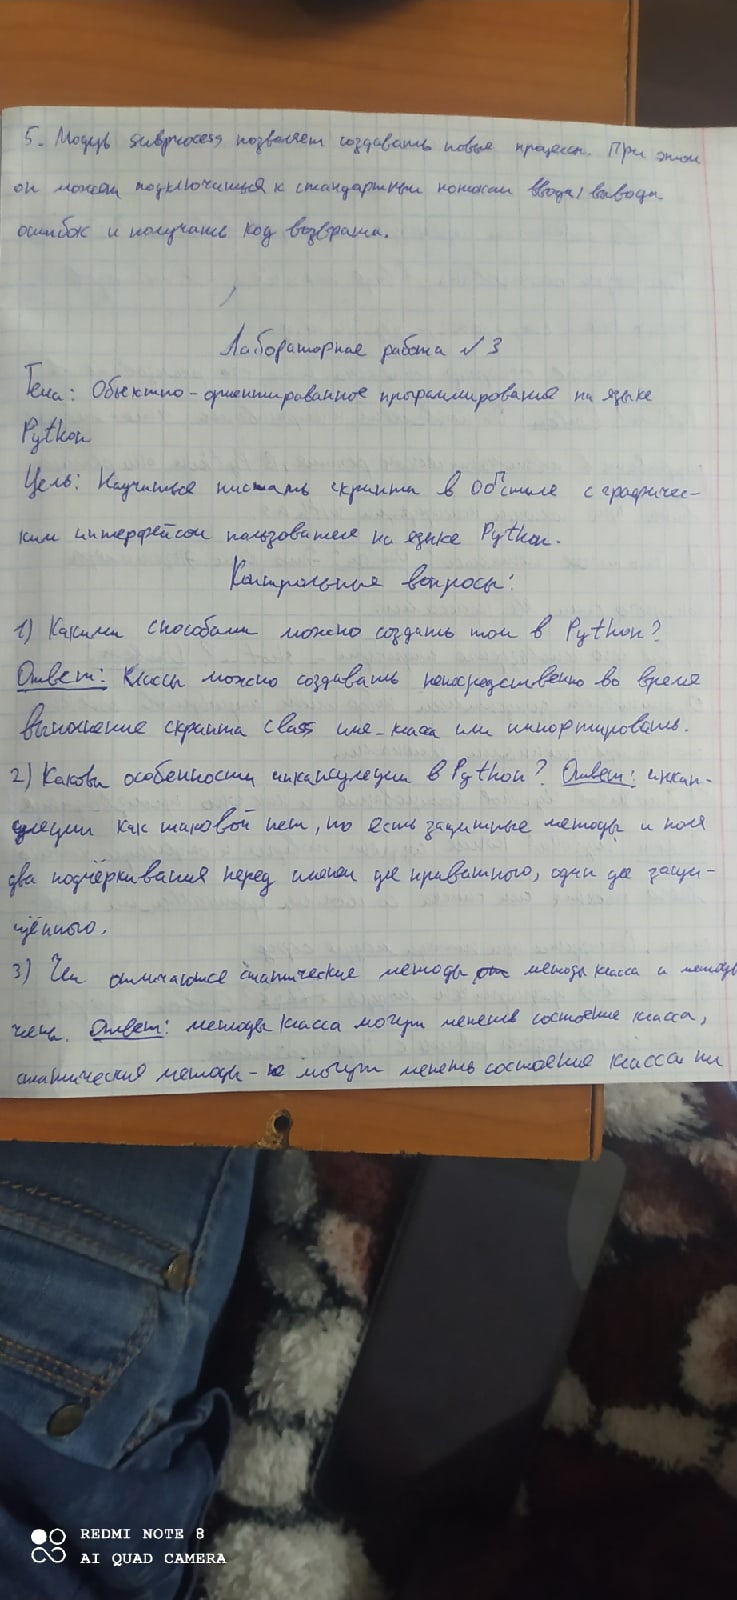 5. Модуль subprocess позволяет создавать новые процессы. При этом
он может подключиться к стандартным потокам ввода/вывода
ошибок и получать код возврата.
Лабораторная работа №3
Тема: Объектно-ориентированное программирование на языке
Python
Цель: Научиться писать скрипты в ОО стиле с графичес-
ким интерфейсом пользователя на языке Python.
Контрольные вопросы:
1) Какими способами можно создать в Python?
Ответ: Классы можно создавать непосредственно во время
выполнение скрипта class имя_класса или импортировать.
2) Каковы особенности инкапсуляции в Python? Ответ: инкап-
уляции как таковой нет, но есть защитные методы и поля
два подчёркивания перед именем для приватного, один для защи-
щённого.
3) Чем отличаются статические методы методы класса и методы
член. Ответ: методы класса могут менять состояние класса,
статические методы - не могут менять состояние класса ни
REDMI NOTE 8
AI QUAD CAMERA